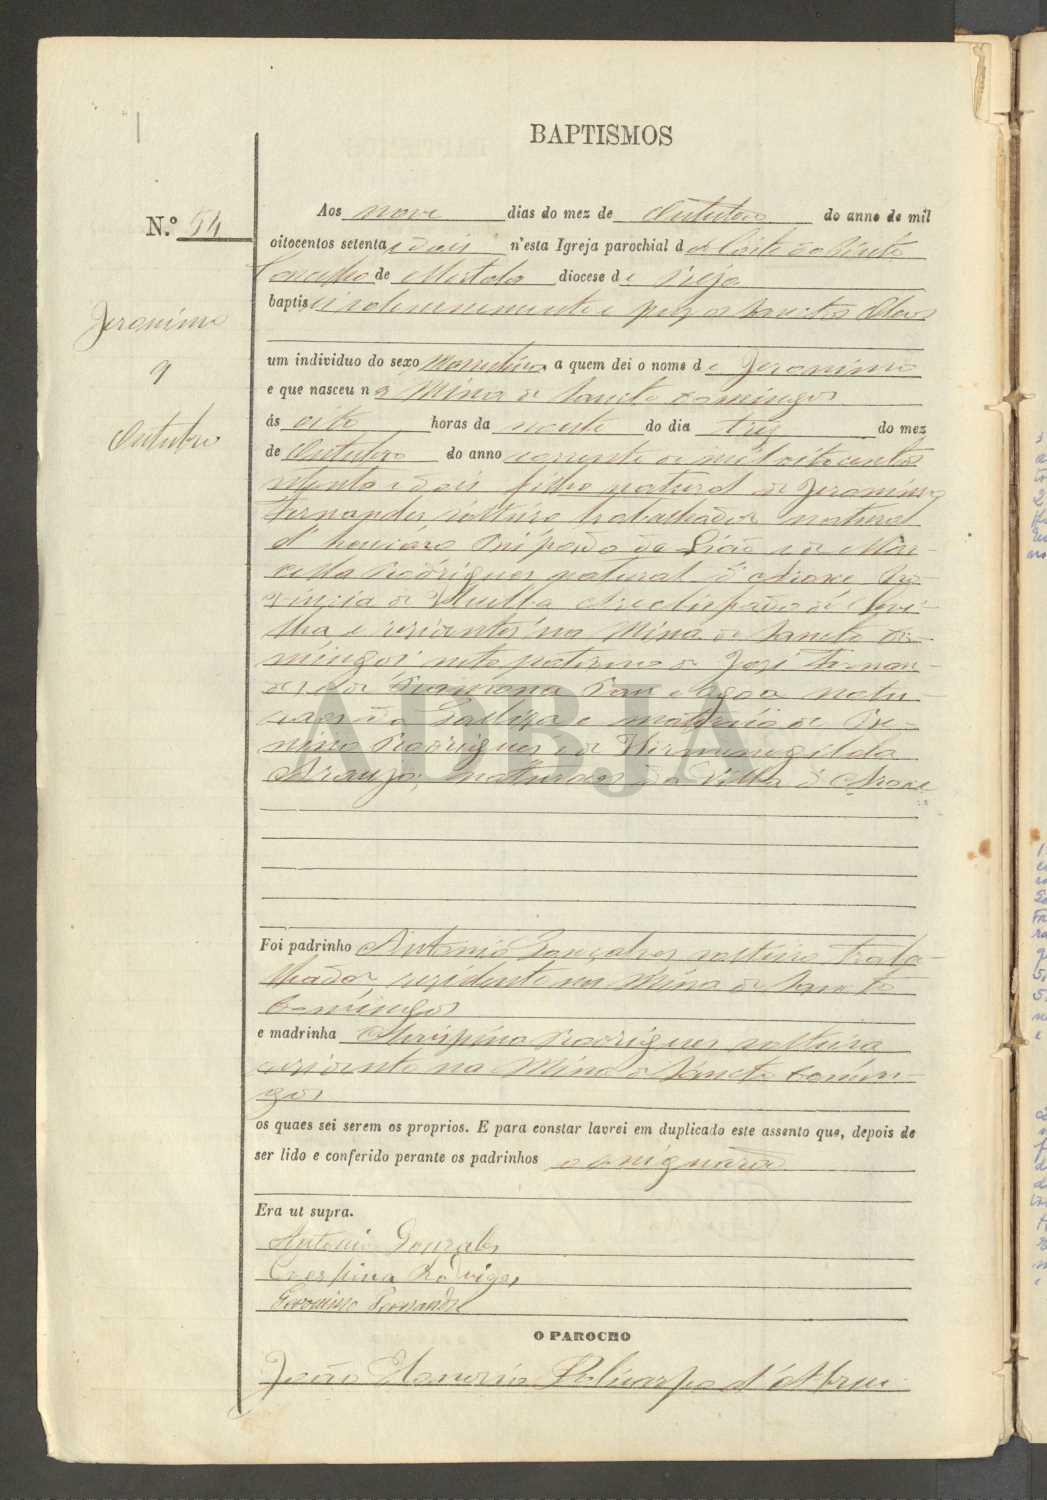 BAPTISMOS
N.º 54
Jeronimo
9
Outubro
Aos nove dias do mez de Outubro do anno de mil
oitocentos setenta e dois n'esta Igreja parochial d de Corte do Pinto
Concelho de Mertola diocese de Beja
baptisei solemnemente e puz os Sanctos Oleos
um individuo do sexo masculino, a quem dei o nome de Jeronimo
e que nasceu na Mina de Sancto Domingos
ás oito horas da noute do dia trez do mez
de Outubro do anno corrente de mil oitocentos
setenta e dois filho natural de Jeronimo
Fernandes solteiro trabalhador natural
d' Bispado de Lião e de Mar-
cella Rodrigues natural d'Aroxe Pro-
vincia de Huelba Arcebispado de Sevi-
lha e residentes na Mina de Sancto Do-
mingos neto paterno de José Fernan-
des e de Ramona natu-
raes da Galliza e materno de Be-
nino Rodrigues e de Hermenegilda
Araujo, naturaes da Villa d'Aroxe
Foi padrinho Antonio Gonçalves solteiro traba-
lhador, residente na Mina de Sancto
Domingos
e madrinha Chrispina Rodrigues solteira
residente na Mina de Sancto Domin-
gos
os quaes sei serem os proprios. E para constar lavrei em duplicado este assento que, depois de
ser lido e conferido perante os padrinhos o assignarão
Era ut supra.
Antonio Gonzales
Crespina Rodriges
Geronimo Fernandes
O PAROCHO
João Honorio Policarpo d'Abreu
ADBJA